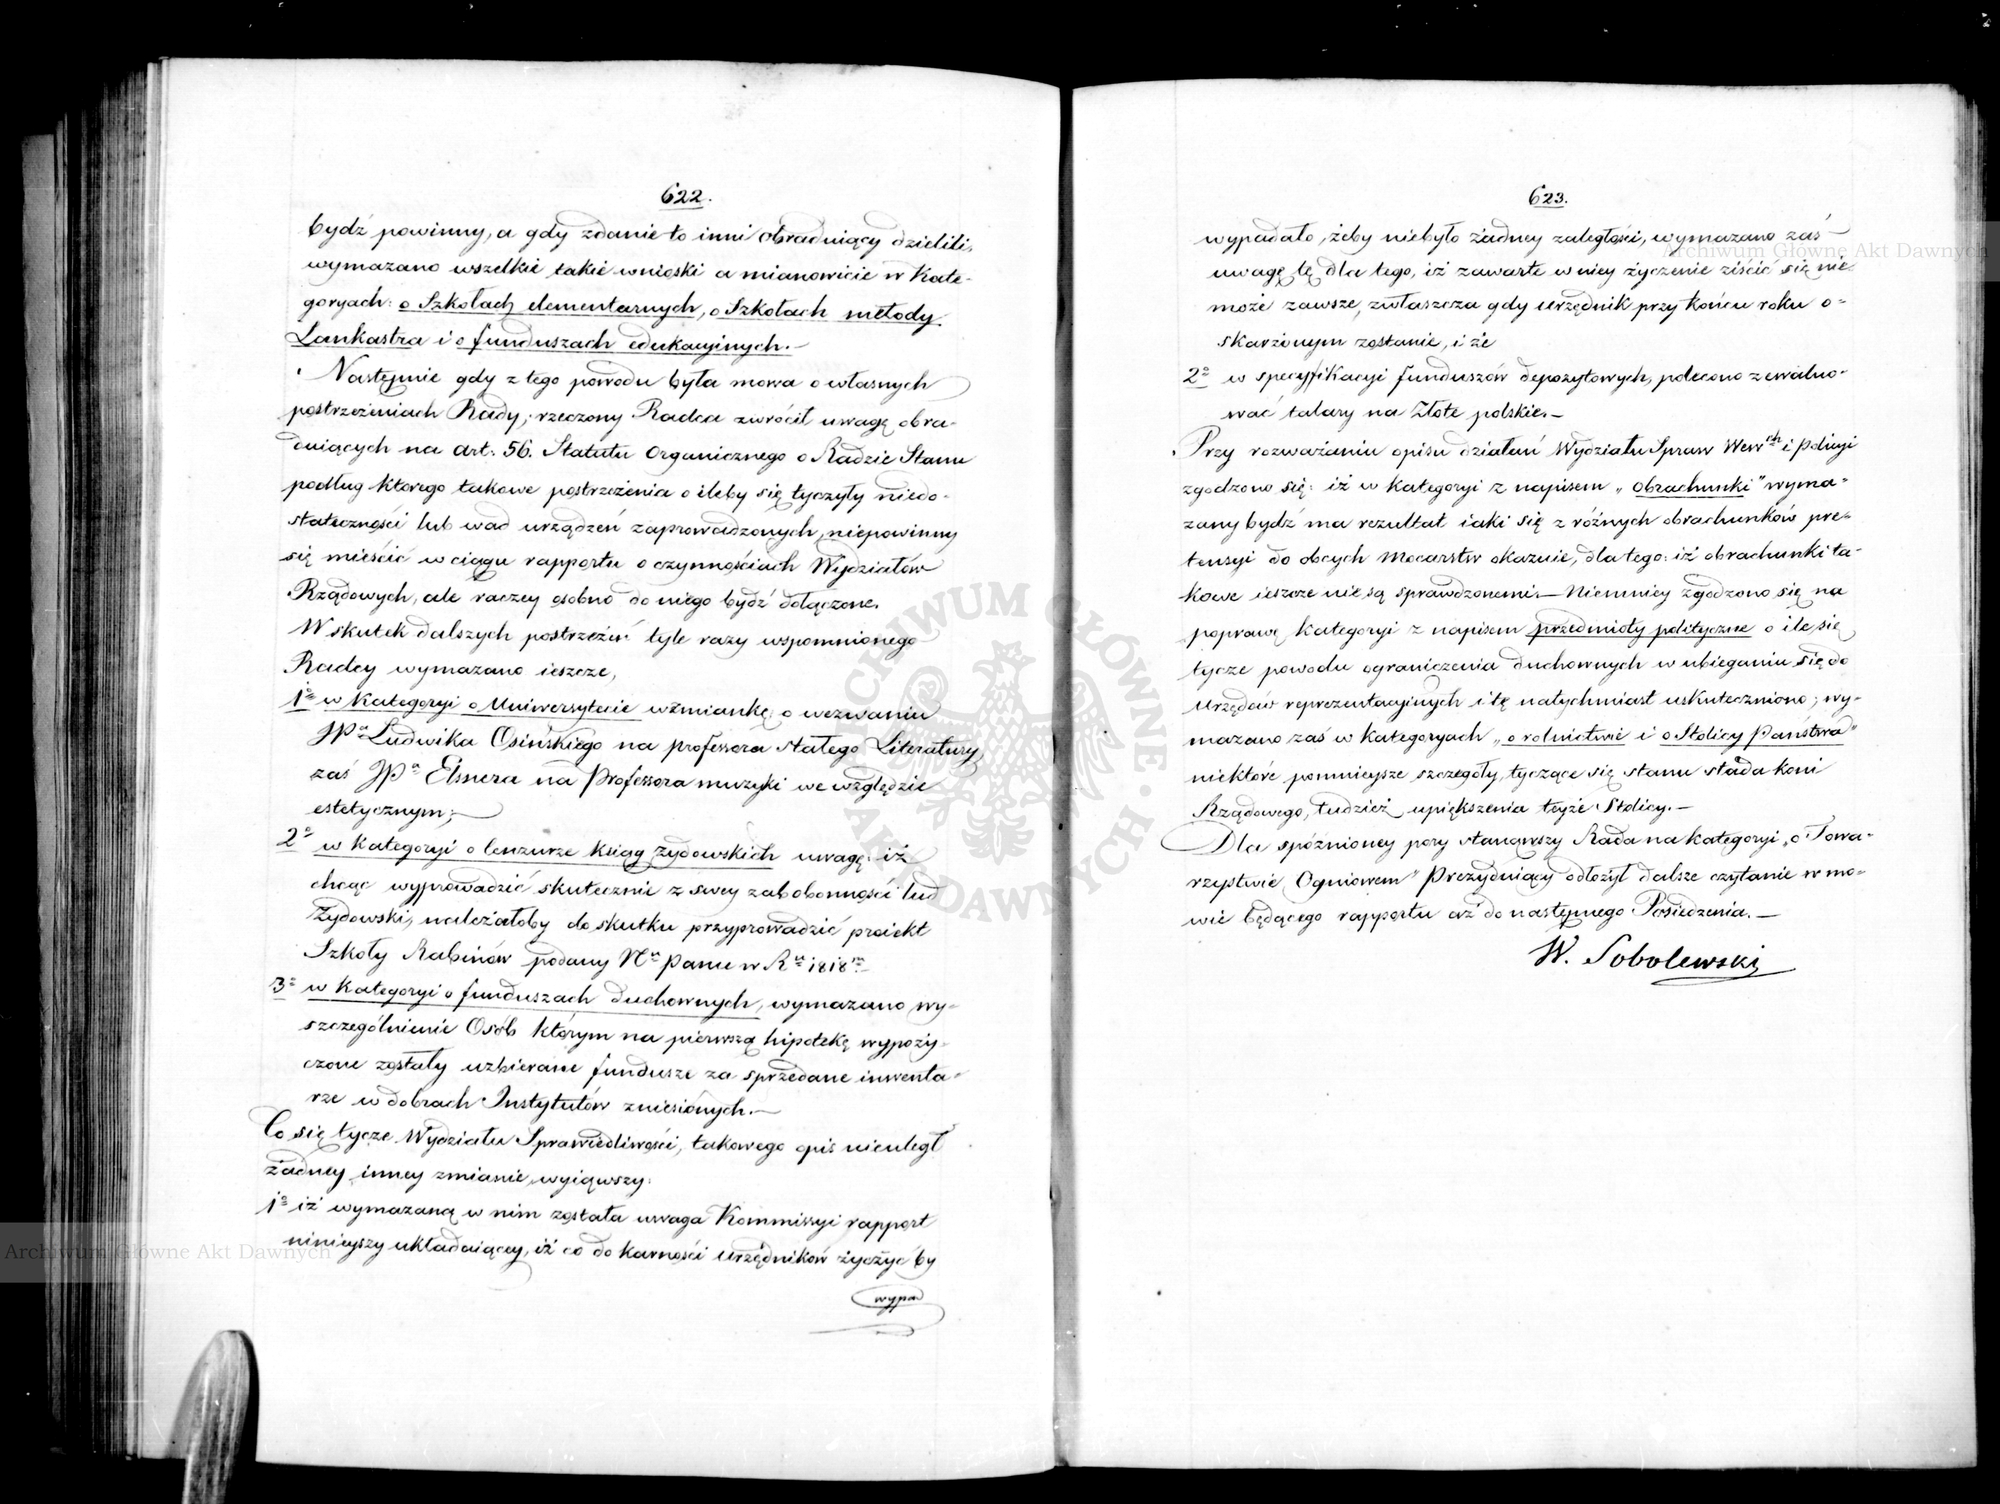 622.
bydź powinny, a gdy zdanie to inni obraduiący dzielili,
wymazano wszelkie takie wnioski a mianowicie w Kate-
goryach: o Szkołach elementarnych, o Szkołach metody
Lankastra i o funduszach edukacyinych.—
Następnie gdy z tego powodu była mowa o własnych
postrzeżeniach Rady; rzeczony Radca zwrócił uwagę obra-
duiących na art: 56. Statutu Organicznego o Radzie Stanu
podług którego takowe postrzeżenia o ileby się tyczyły niedo-
stateczności lub wad urządzeń zaprowadzonych, niepowinny
się mieścić w ciągu rapportu o czynnościach Wydziałów
Rządowych, ale raczey osobno do niego bydź dołączone.
W skutek dalszych postrzeżeń tyle razy wspomnionego
Radcy wymazano ieszcze,
1o w Kategoryi o Uniwersytecie wzmiankę o wezwaniu
JPa Ludwika Osińskiego na professora stałego Literatury
zaś JPa Elsnera na Professora muzyki we względzie
estetycznym;—
2o w Kategoryi o Cenzurze ksiąg Żydowskich uwagę: iż
chcąc wyprowadzić skutecznie z swey zabobonności lud
Żydowski, należałoby do skutku przyprowadzić proiekt
Szkoły Rabinów podany Nu Panu w Ru 1818m—
3o w Kategoryi o funduszach duchownych, wymazano wy-
szczególnienie Osób którym na pierwszą hipotekę wypoży-
czone zostały uzbierane fundusze za sprzedane inwenta-
rze w dobrach Instytutów zniesionych.—
Co się tycze Wydziału Sprawiedliwości, takowego opis nieuległ
żadney inney zmianie wyiąwszy:
1o iż wymazaną w nim została uwaga Kommissyi rapport
ninieyszy układaiącey, iż co do karności Urzędników życzyć by
wypad
623.
wypadało, żeby niebyło żadney zaległości, wymazano zaś
uwagę tę dla tego, iż zawarte w niey życzenie ziścić się nie
może zawsze, zwłaszcza gdy Urzędnik przy końcu roku o-
skarżonym zostanie, i że
2o w specyfikacyi funduszów depozytowych, polecono zewaluo-
wać talary na Złote polskie.—
Przy rozważaniu opisu działań Wydziału Spraw Wewch i Policyi
zgodzono się: iż w kategoryi z napisem „Obrachunki" wyma-
zany bydź ma rezultat iaki się z różnych obrachunków pre-
tensyi do obcych Mocarstw okazuie, dla tego: iż obrachunki ta-
kowe ieszcze nie są sprawdzonemi.— Niemniey zgodzono się na
poprawę Kategoryi z napisem przedmioty polityczne o ile się
tycze powodu ograniczenia duchownych w ubieganiu się do
Urzędów reprezentacyinych i tę natychmiast uskuteczniono; wy-
mazano zaś w Kategoryach „o rolnictwie i o Stolicy Państwa"
niektóre pomnieysze szczegóły, tyczące się stanu stada koni
Rządowego, tudzież upiększenia teyże Stolicy.—
Dla spóźnioney pory stanąwszy Rada na Kategoryi „o Towa-
rzystwie Ogniowem" Prezyduiący odłożył dalsze czytanie w mo-
wie będącego rapportu aż do następnego Posiedzenia.—
W. Sobolewski
Archiwum Główne Akt Dawnych
Archiwum Główne Akt Dawnych
ARCHIWUM GŁÓWNE AKT DAWNYCH